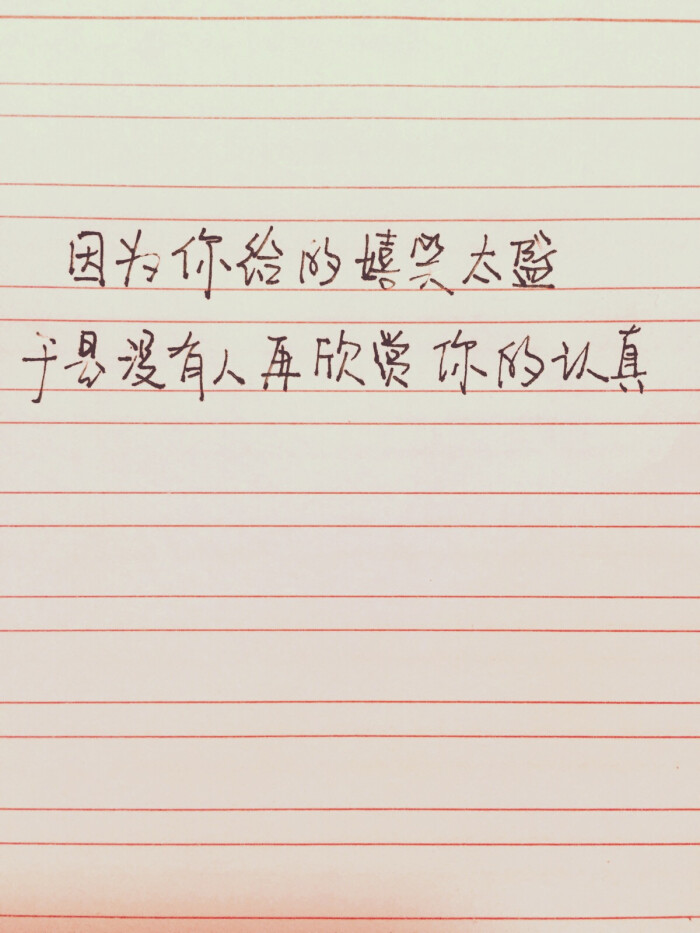 因为你给的嬉笑太盛
于是没有人再欣赏你的认真